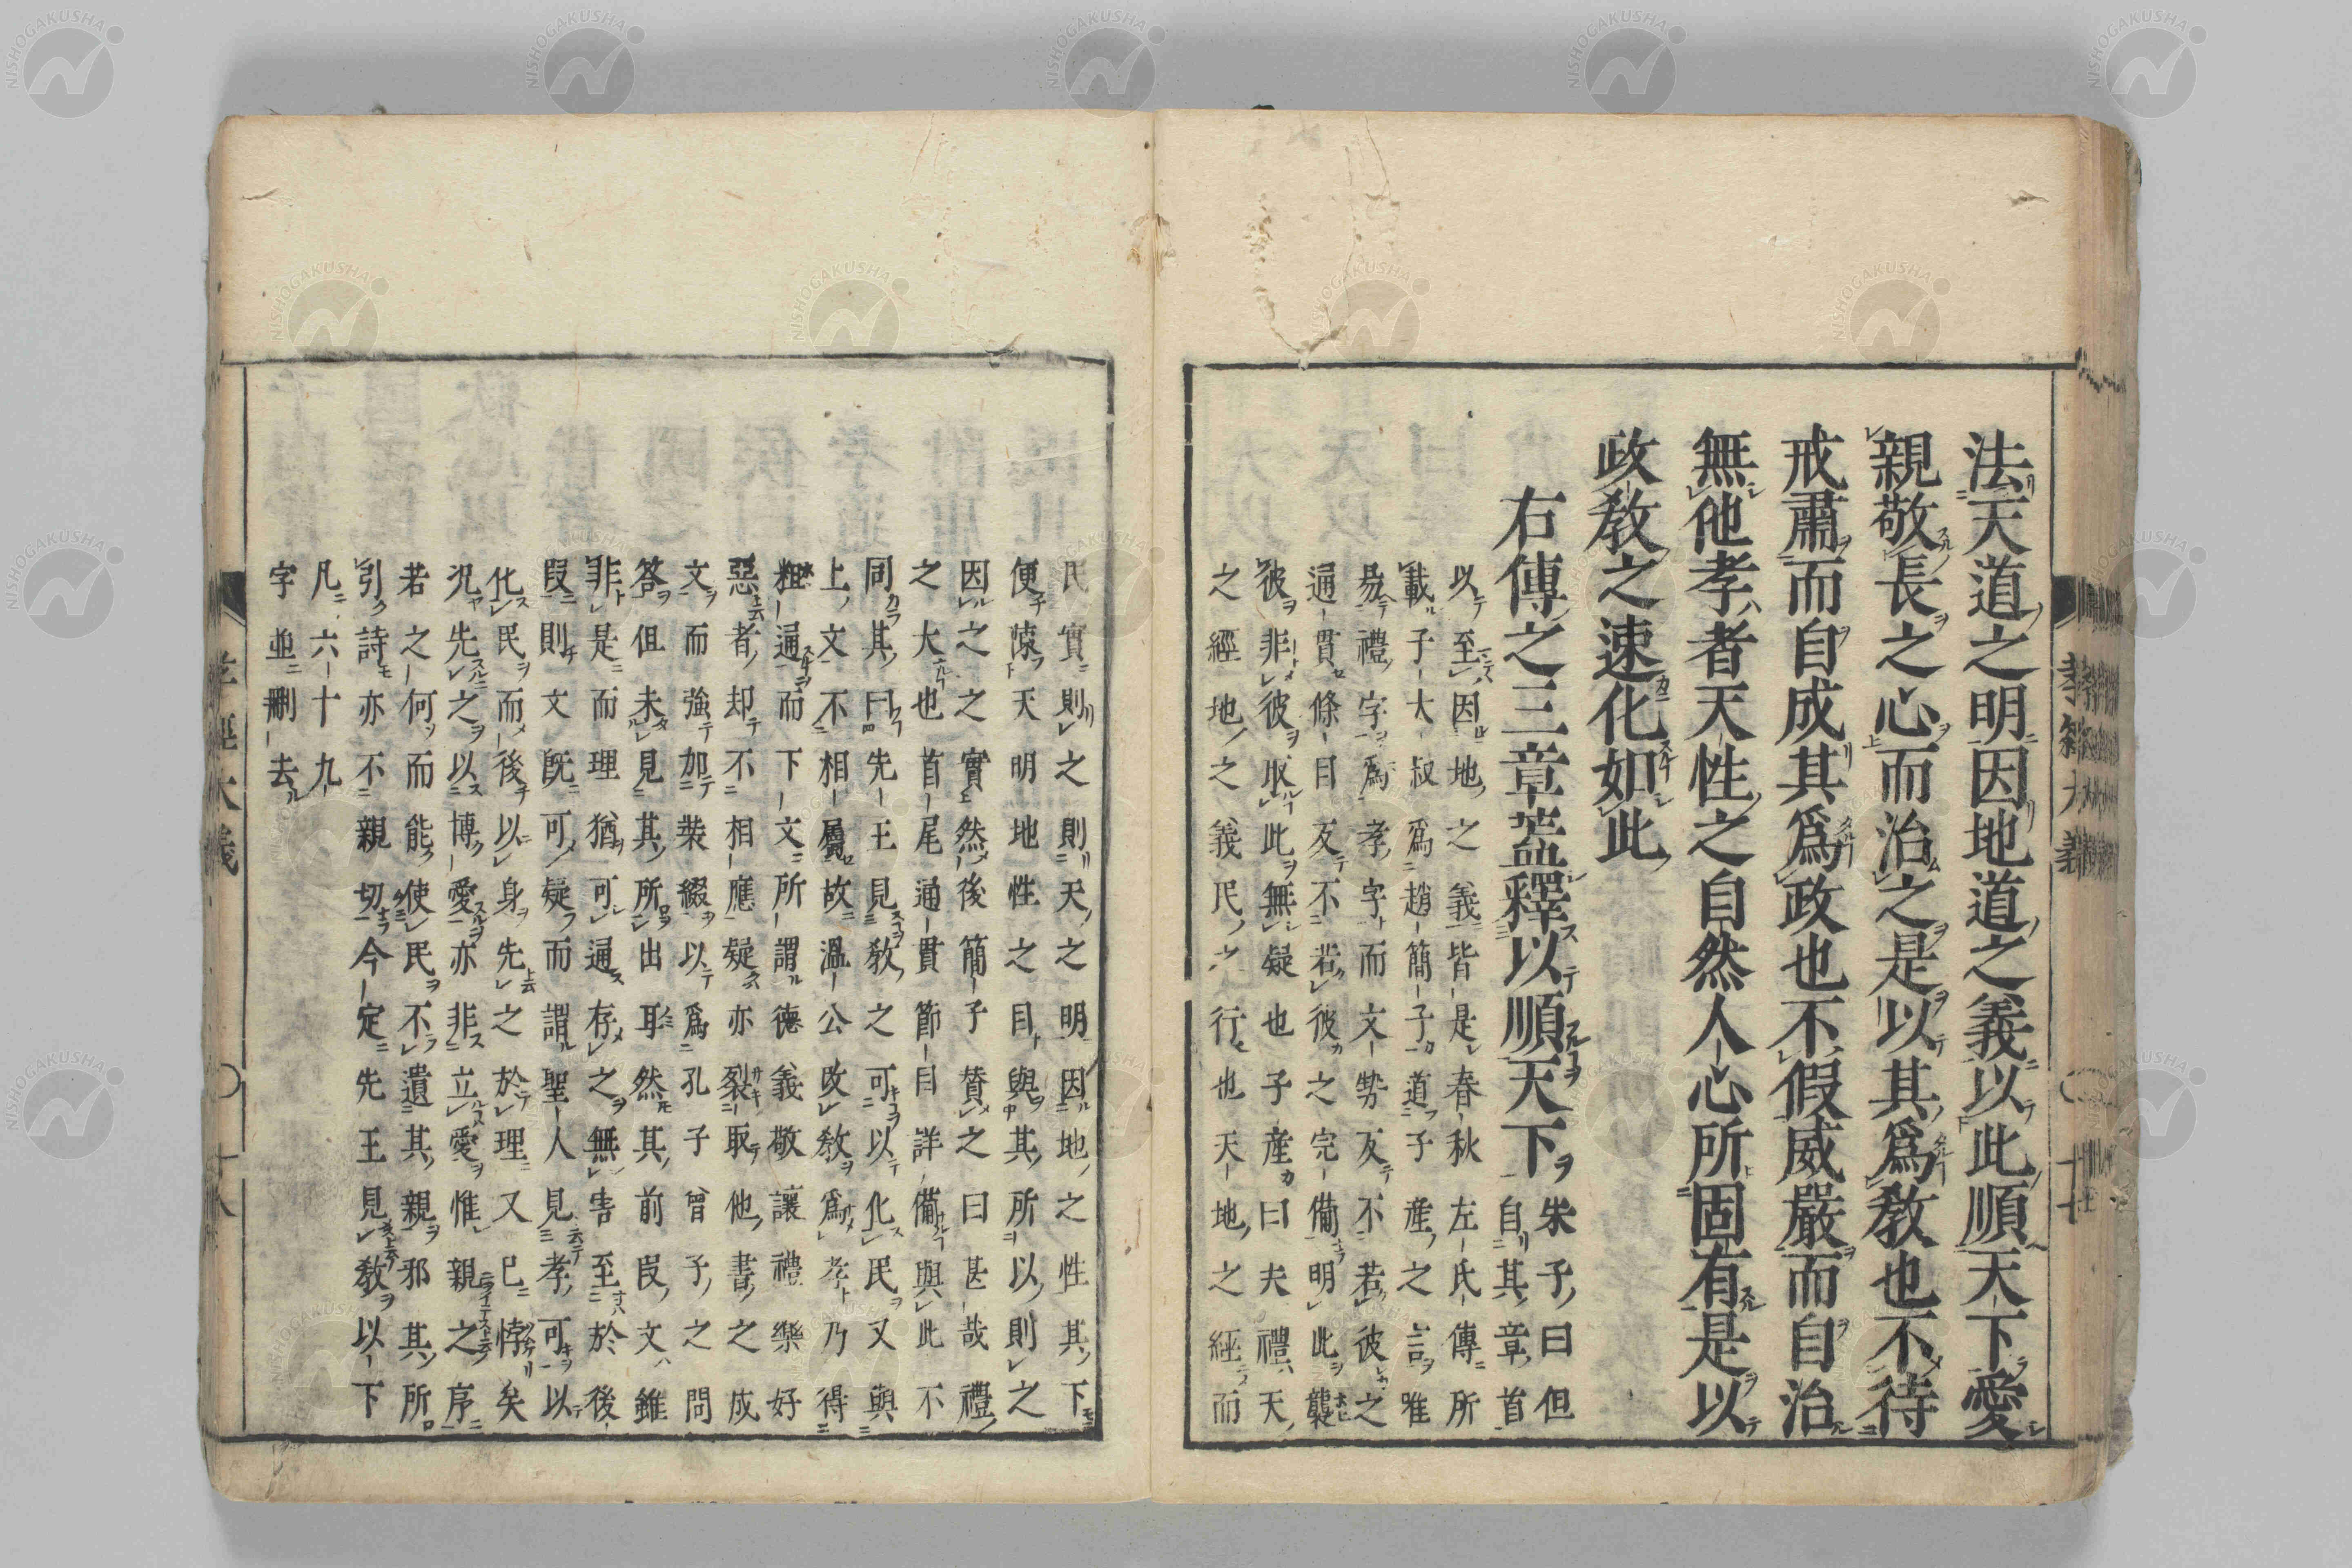 法天道之明因地道之義以此順天下愛
親敬長之心而治之是以其爲教也不待
戒肅而自成其爲政也不假威嚴而自治
無他孝者天性之自然人心所固有是以
政教之速化如此
右傳之三章蓋釋以順天下朱子曰但
自其章首
以至因地之義皆是春秋左氏傳所
載子大叔爲趙簡子道子産之言唯
易禮字爲孝字而文勢反不若彼之
通貫條目反不若彼之完備明此襲
彼非彼取此無疑也子産曰夫禮天
之經地之義民之行也天地之經而
民實則之則天之明因地之性其下
便陳天明地性之目與其所以則之
因之之實然後簡子贊之曰甚哉禮
之大也首尾通貫節目詳備與此不
同其曰先王見教之可以化民又與
上文不相屬故溫公改教爲孝乃得
粗通而下文所謂德義敬讓禮樂好
惡者却不相應疑亦裂取他書之成
文而強加裝綴以爲孔子曾子之問
答但未見其所出耳然其前段文雖
非是而理猶可通存之無害至於後
段則文既可疑而謂聖人見孝可以
化民而後以身先之於理又已悖矣
況先之以博愛亦非立愛惟親之序
若之何而能使民不遺其親邪其所
引詩亦不親切今定先王見教以下
凡六十九
字並刪去
孝經大義 〇 十八
NISHOGAKUSHA